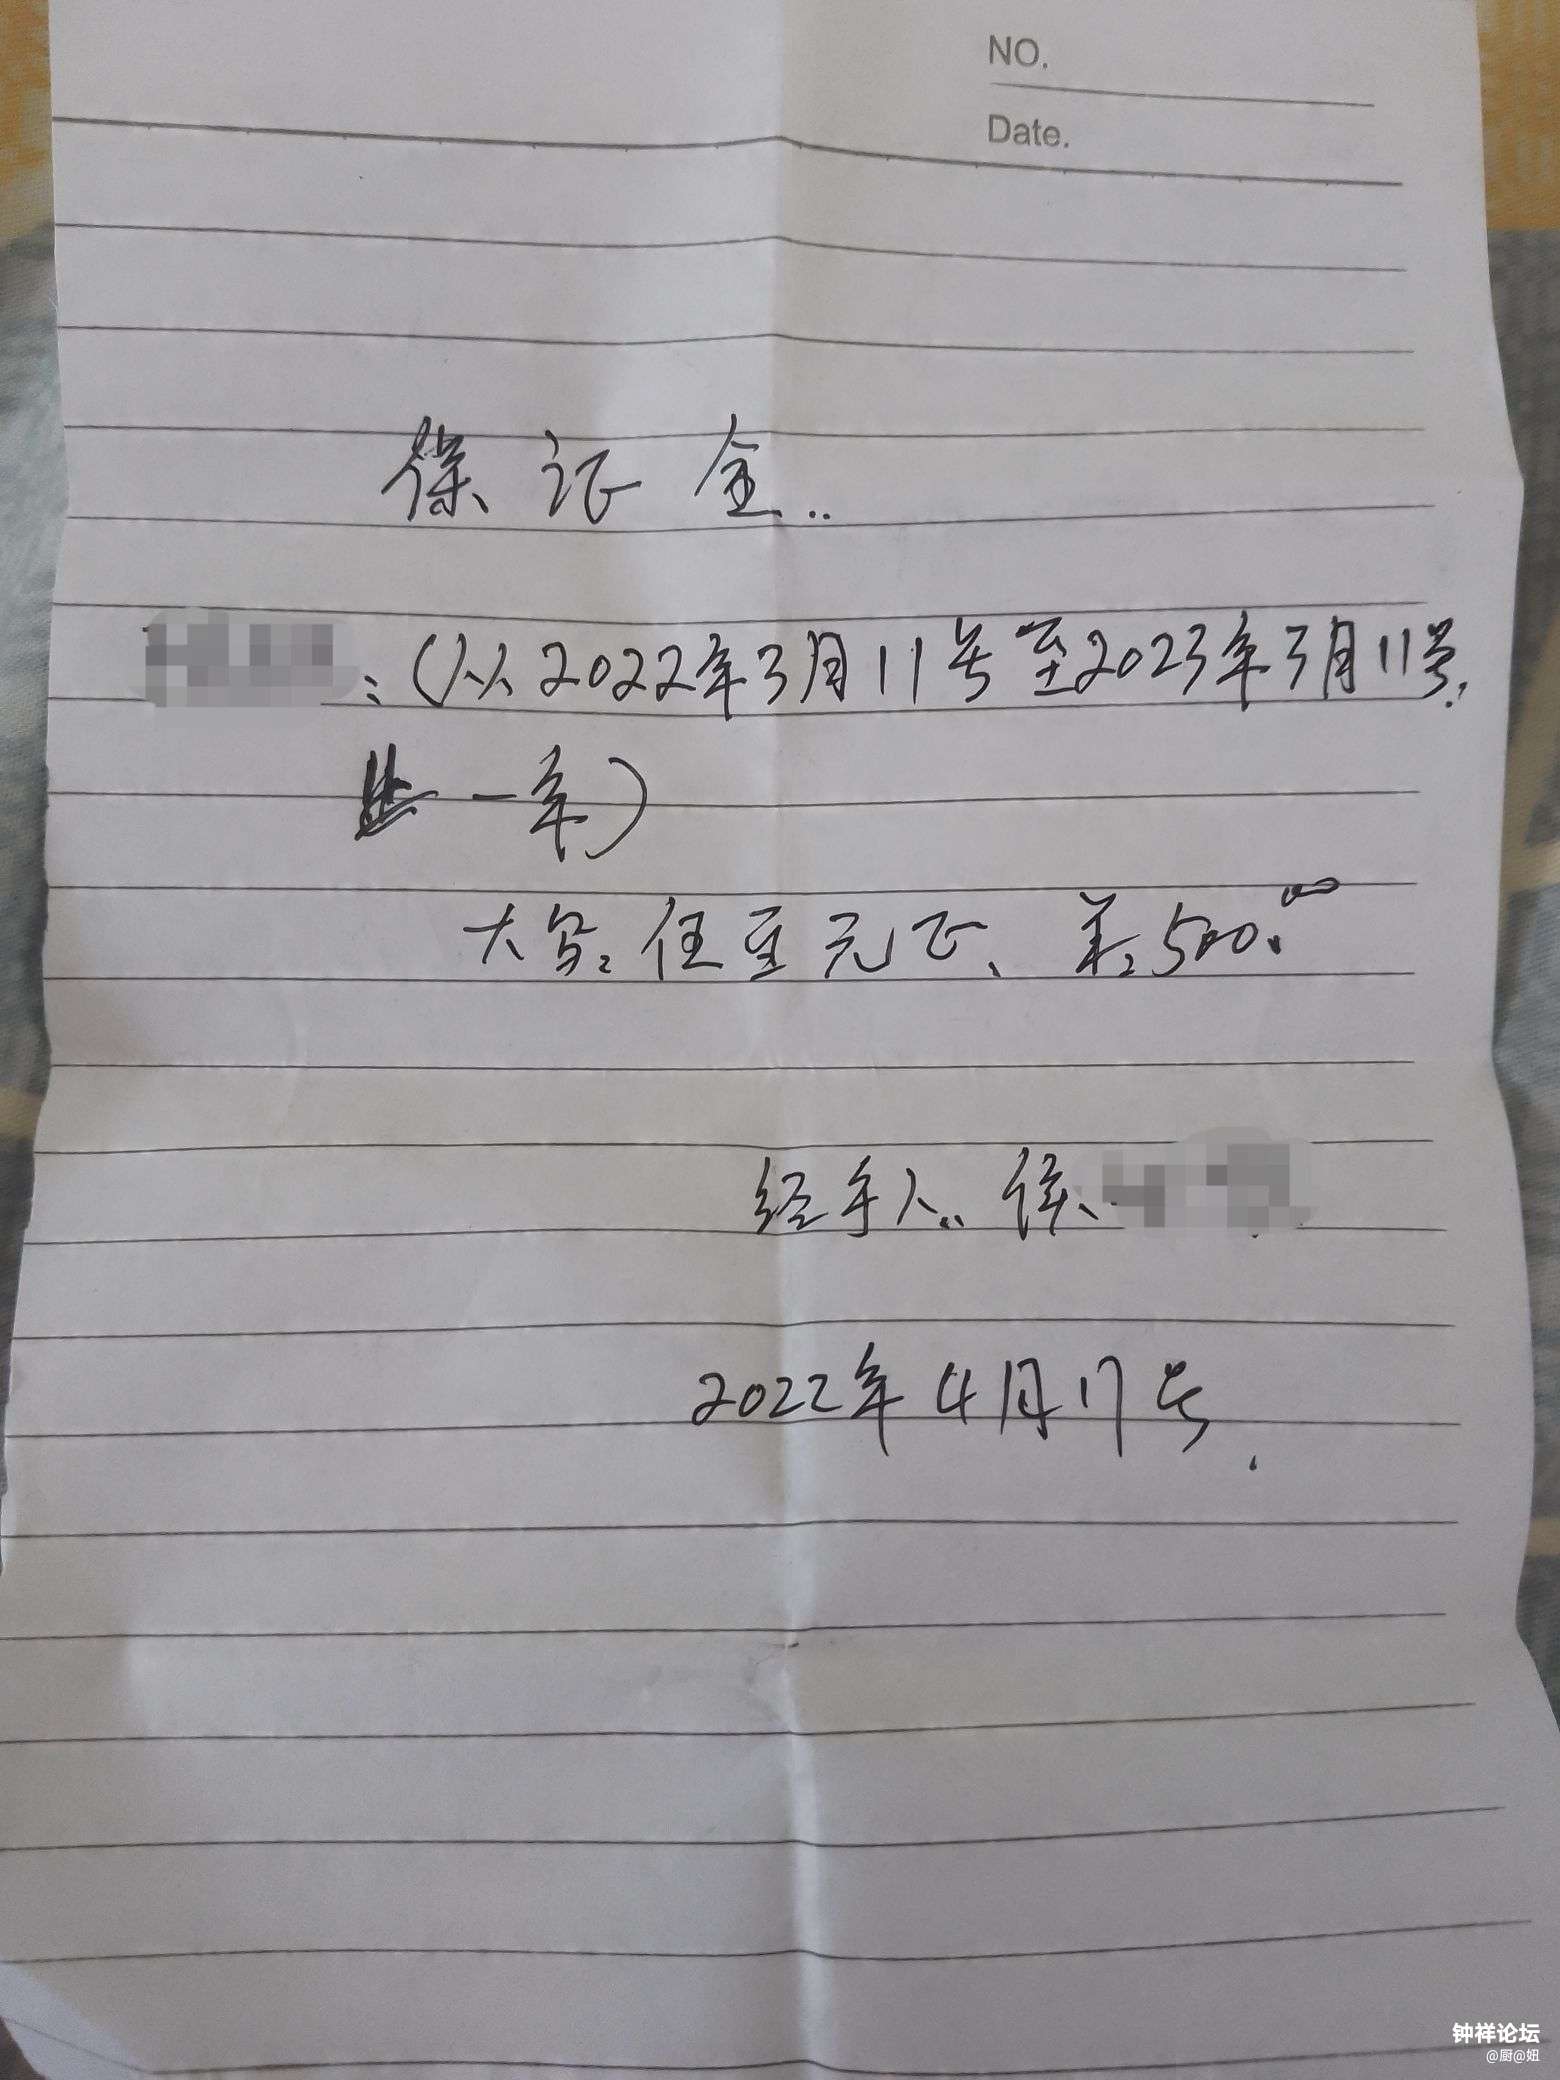 NO.
Date.
保证金..
:(从2022年3月11号至2023年3月11号.
一年)
大写:伍百元正、 ¥:500.00
经手人..
2022年4月17号.
钟祥论坛
@厨@妞